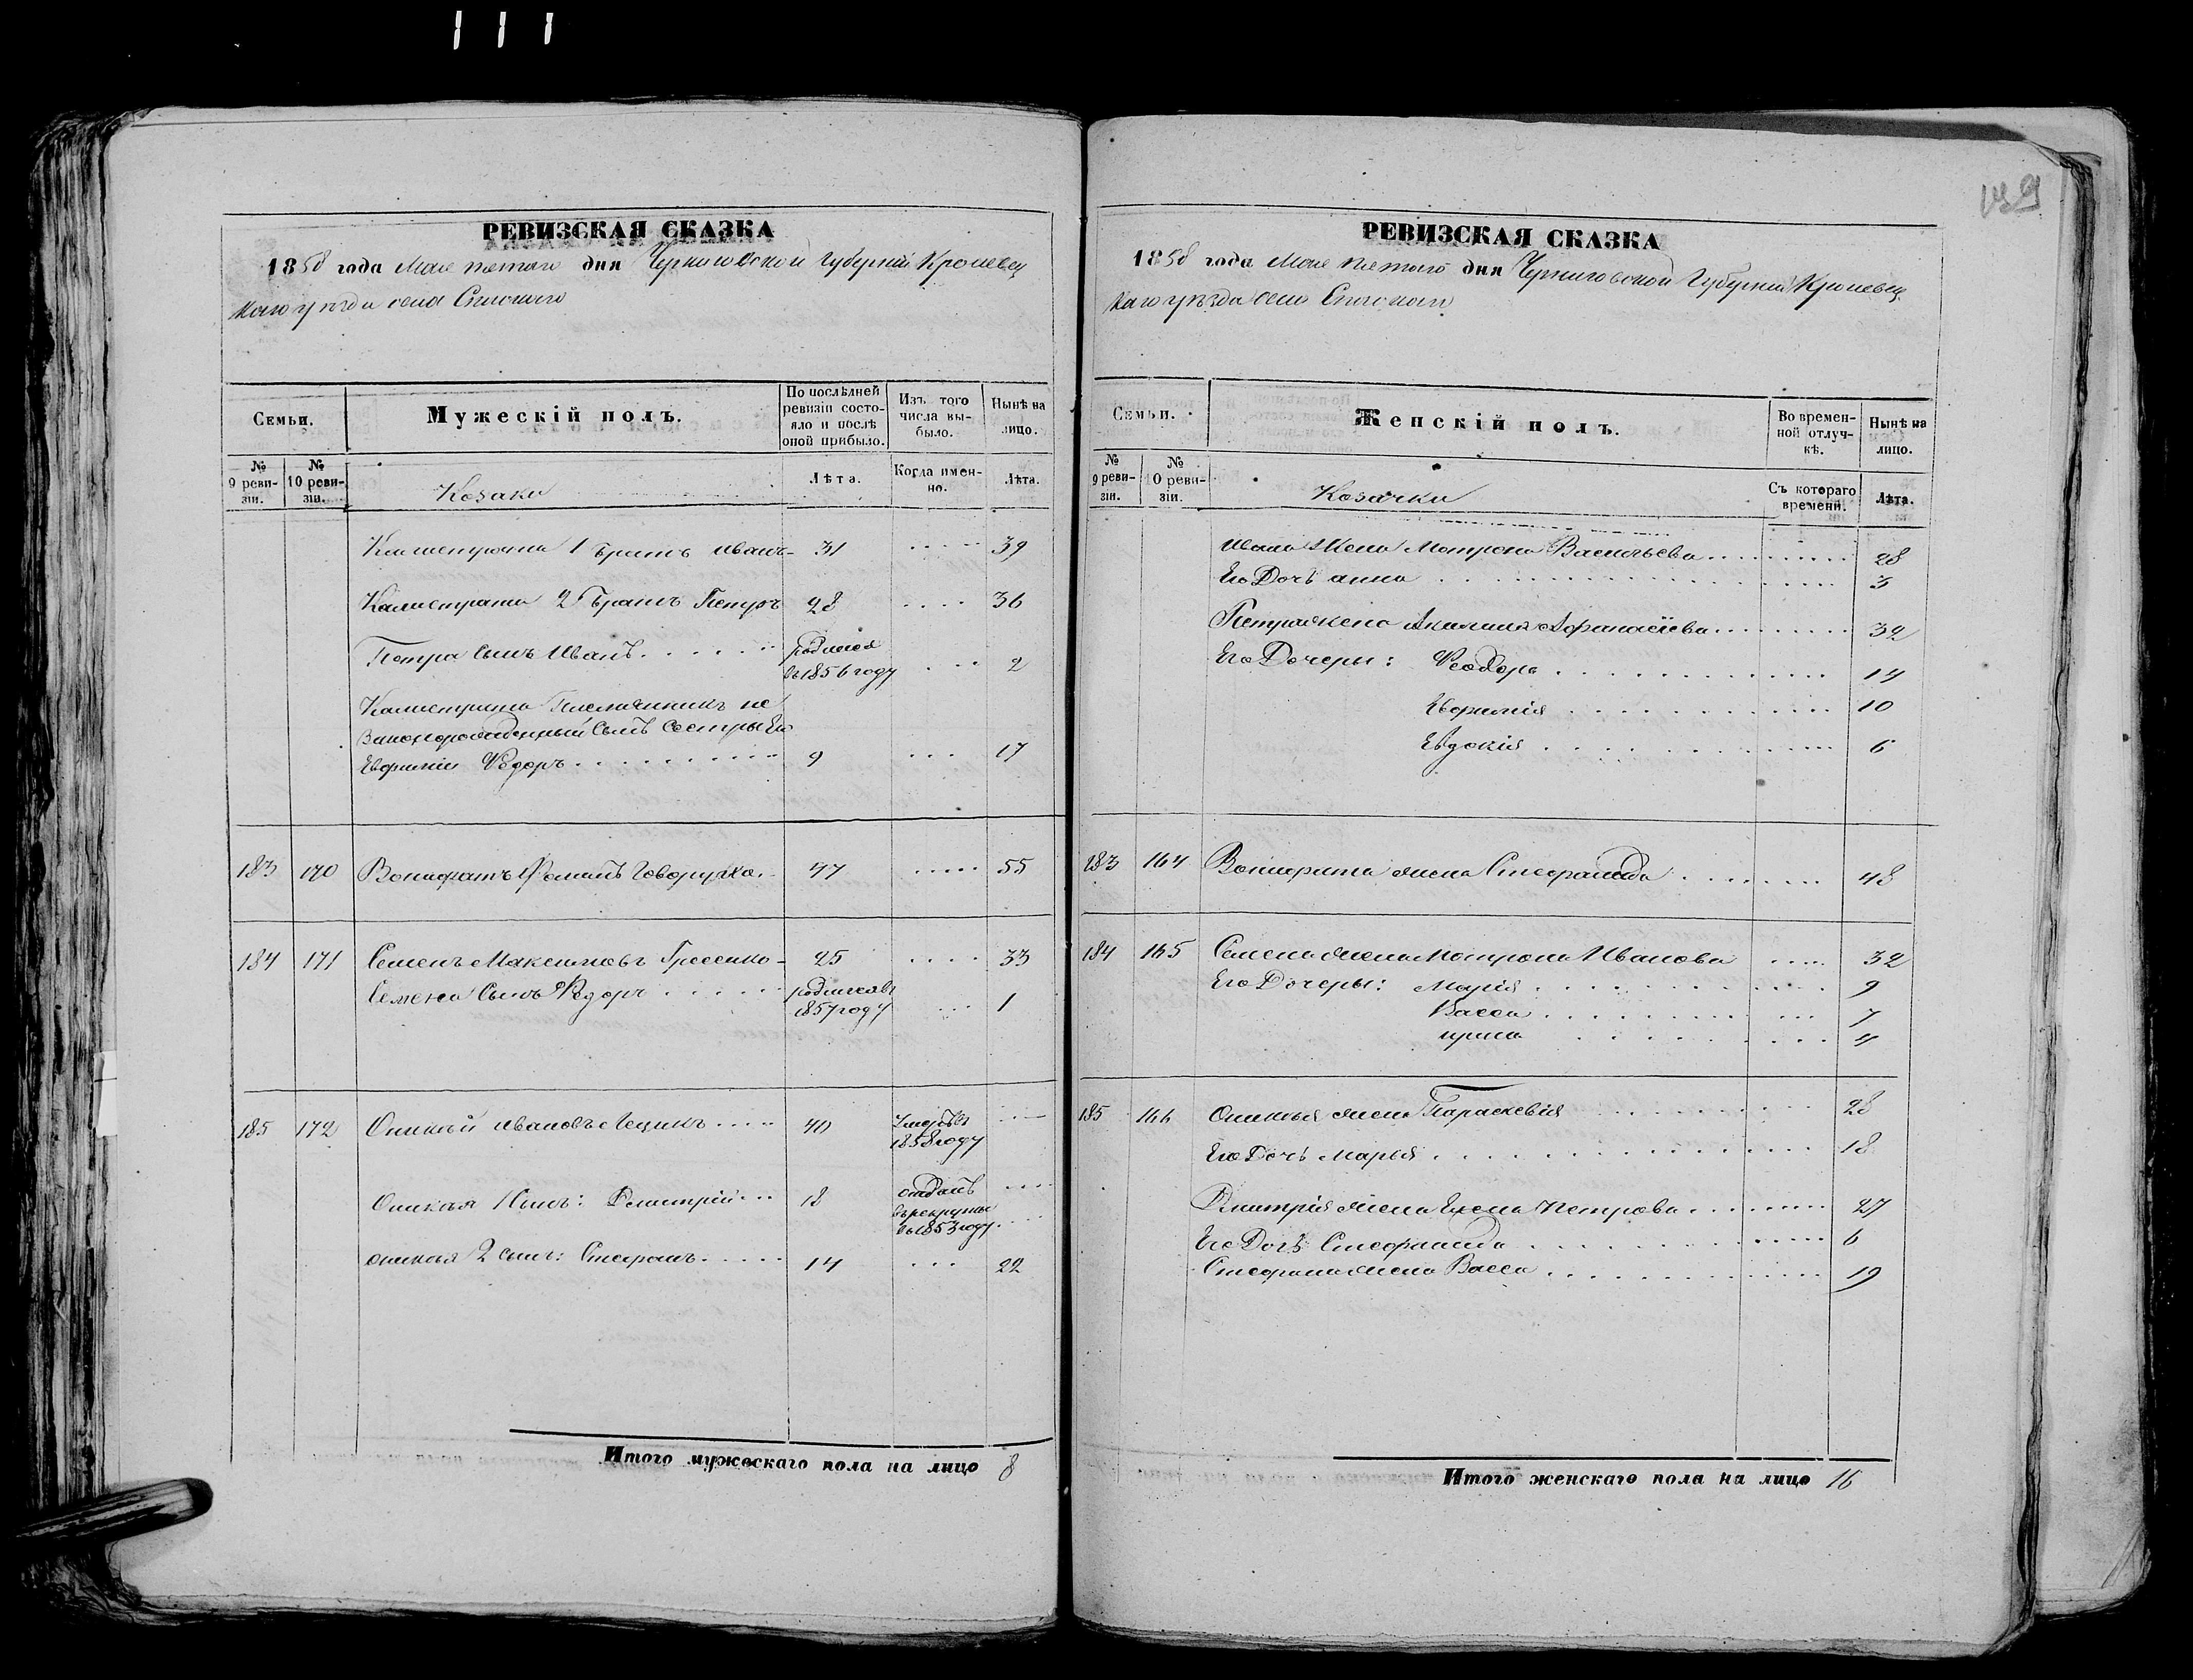 111
РЕВИЗСКАЯ СКАЗКА
1858 года Мая пятаго дня Черниговской Губерніи Кролевец
каго уѣзда села Спаскаго
Семьи.
Мужескій полъ.
По послѣдней ревизіи состояло и послѣ оной прибыло.
Изъ того числа выбыло.
Нынѣ на лицо.
№ 9 ревизіи.
№ 10 ревизіи.
Козаки
Лѣта.
Когда именно.
Лѣта.
Калистрата 1 братъ Иванъ 31 39
Калистрата 2 братъ Петръ 28 36
Петра сынъ Иванъ родился
въ 1856 году 2
Калистрата Племянникъ не
законорожденный сынъ сестры Его
Евфиміи Федоръ 9 17
183 170 Вонифатъ Говоруха 47 55
184 171 Семенъ Максимовъ 25 33
Семена сынъ Федоръ родился въ
1857 году 1
185 172 Оникій Ивановъ Лецикъ 40 Умеръ въ
1858 году
Оникія 1 сынъ: Дмитрій 18 отданъ
въ рекруты
въ 1853 году
Оникія 2 сынъ: Стефанъ 14 22
Итого мужескаго пола на лицо 8
РЕВИЗСКАЯ СКАЗКА
1858 года Мая пятаго дня Черниговской Губерніи Кролевец
каго уѣзда села Спаскаго
Семьи.
Женскій полъ.
Во временной отлучкѣ.
Нынѣ на лицо.
№ 9 ревизіи.
№ 10 ревизіи.
Козачки
Съ котораго времени.
Лѣта.
Ивана Жена Мотрона Васильева 28
Его Дочь Анна 3
Петра жена Акилина Афанасіева 32
Его Дочери: Феодора 14
Евфимія 10
Евдокія 6
183 164 Вонифата жена Стефанида 48
184 165 Семена жена Мотрона Иванова 32
Его Дочери: Марія 9
Васса 7
Ирина 4
185 166 Оникія жена Параскевія 28
Его Дочь Марья 18
Дмитрія жена Елена Петрова 27
Его Дочь Стефанида 6
Стефана жена Васса 19
Итого женскаго пола на лицо 16